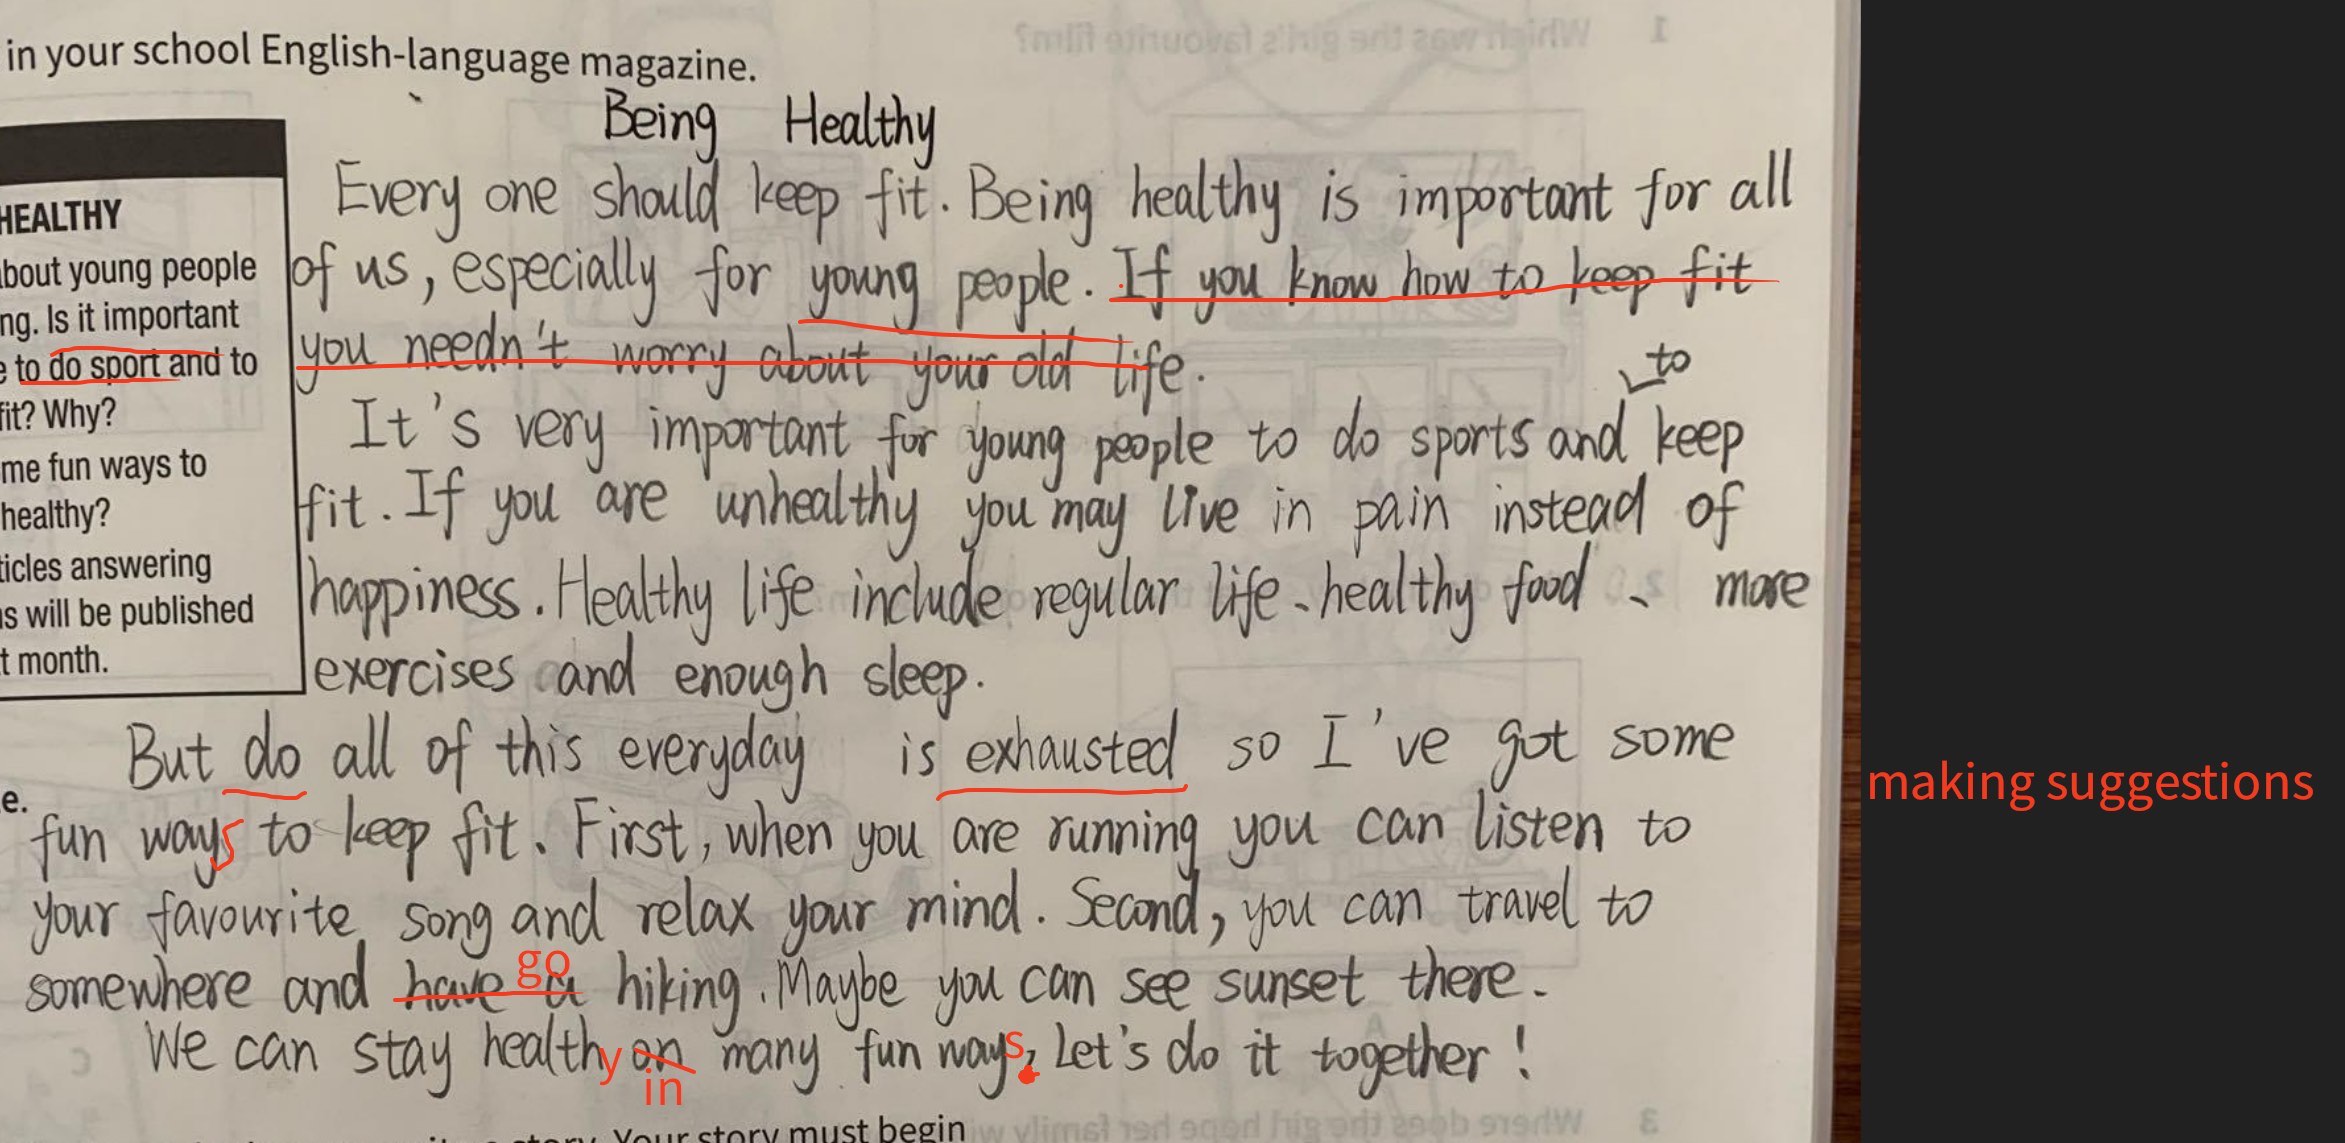 in your school English-language magazine.
Being Healthy
HEALTHY
about young people
ng. Is it important
e to do sport and to
fit? Why?
me fun ways to
healthy?
ticles answering
s will be published
t month.
e.
Every one should keep fit. Being healthy is important for all
of us, especially for young people. If you know how to keep fit
you needn't worry about your old life.
to
It's very important for young people to do sports and keep
fit. If you are unhealthy you may live in pain instead of
happiness. Healthy life include regular life、healthy food、 more
exercises and enough sleep.
But do all of this everyday is exhausted so I've got some
making suggestions
fun ways to keep fit. First, when you are running you can listen to
your favourite song and relax your mind. Second, you can travel to
go
somewhere and have a hiking. Maybe you can see sunset there.
We can stay healthy on many fun ways. Let's do it together!
in
Your story must begin
1 Which was the girl's favourite film?
3 Where does the girl hope her family wi